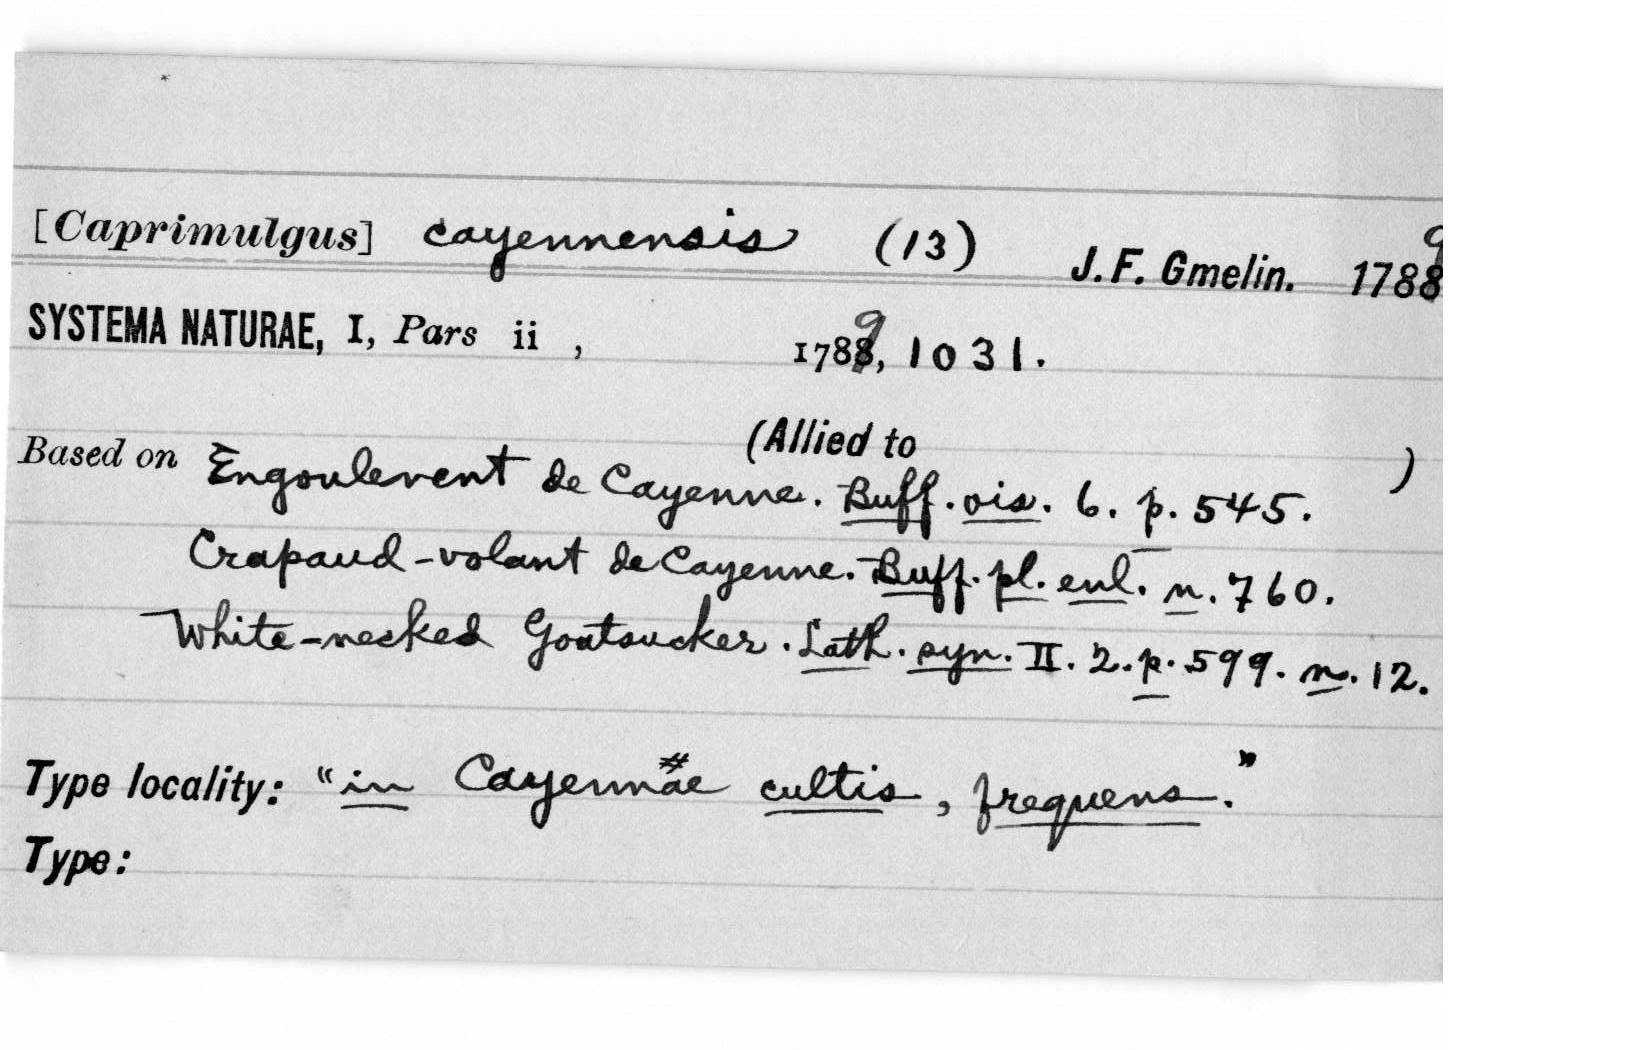 [Caprimulgus] cayennensis (13) J. F. Gmelin. 1788 9
SYSTEMA NATURAE, I, Pars ii , 1788 9, 1031.
(Allied to )
Based on Engoulevent de Cayenne. Buff. ois. 6. p. 545.
Crapaud-volant de Cayenne. Buff. pl. enl. n. 760.
White-necked Goatsucker. Lath. syn. II. 2. p. 599. n. 12.
Type locality: "in Cayennae cultis, frequens."
Type: